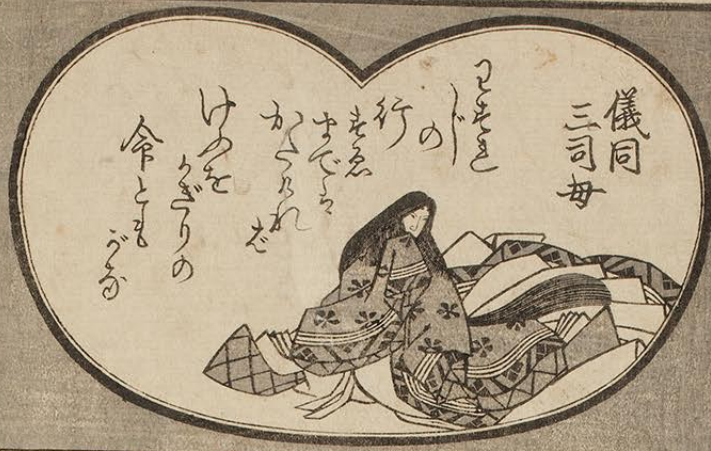 儀同
三司母
わすれ
じ
の
行
すゑ
までは
かたけれ
ば
けふを
かぎりの
命とも
がな